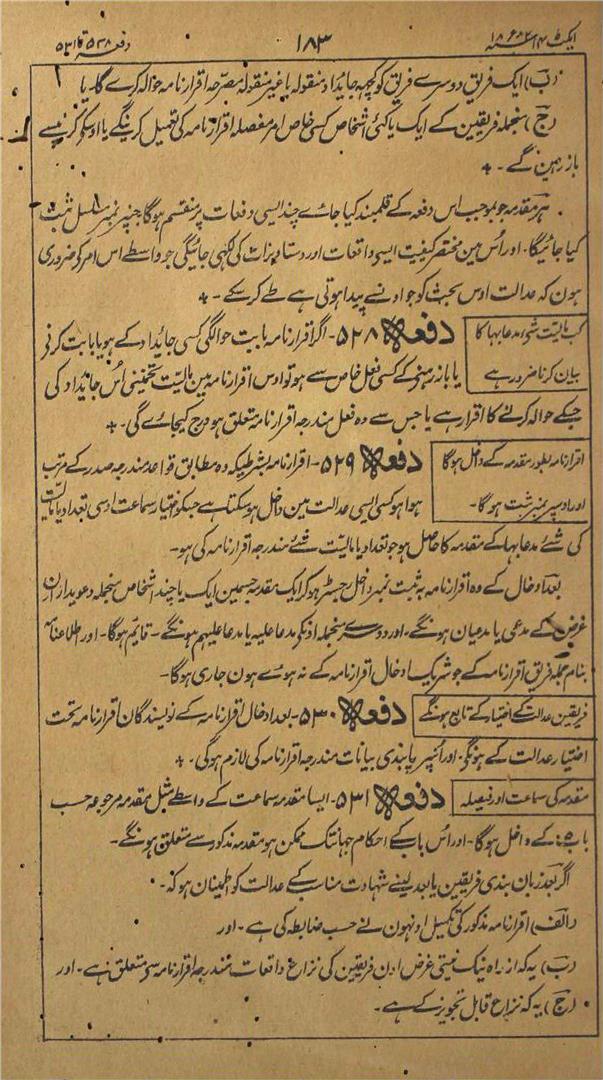 ایکٹ ۱۴ سنہ ۱۸۸۲ء ۱۸۳ دفعہ ۵۲۸ تا ۵۳۱
(ب) ایک فریق دوسرے فریق کو کچھ جائداد منقولہ یا غیر منقولہ مصرحہ اقرار نامہ حوالہ کرے گا۔ یا
(ج) منجملہ فریقین کے ایک یا کئی اشخاص کسی خاص امر مفصلہ اقرار نامہ کی تعمیل کرینگے یا اوسکو کرنیسے
باز رہین گے۔
ہر مقدمہ جو بموجب اس دفعہ کے قلمبند کیا جائے چند ایسی دفعات پر منقسم ہوگا جنپر نمبر مسلسل ثبت
کیا جائیگا۔ اور اُس مین مختصر کیفیت ایسی واقعات اور دستاویزات کی لکھی جائیگی جو واسطے اس امر کے ضروری
ہون کہ عدالت اوس بحث کو جو اونسے پیدا ہوتی ہے طے کر سکے۔
کب مالیت شے مدعابہا کا
بیان کرنا ضرور ہے
دفعہ ۵۲۸۔ اگر اقرار نامہ بابت حوالگی کسی جائداد کے ہو یا بابت کرنی
یا باز رہنے کے کسی فعل خاص سے ہو تو اوس اقرار نامہ مین مالیت تخمینی اُس جائداد کی
جسکے حوالہ کرنے کا اقرار ہے یا جس سے وہ فعل مندرجہ اقرار نامہ متعلق ہو درج کیجائے گی۔
اقرار نامہ بطور مقدمہ کے داخل ہوگا
اور اوسپر نمبر ثبت ہوگا۔
دفعہ ۵۲۹۔ اقرار نامہ بشرطیکہ وہ مطابق قواعد مندرجہ صدر کے مرتب
ہوا ہو کسی ایسی عدالت مین داخل ہو سکتا ہے جسکو اختیار سماعت اوسی تعداد یا مالیت
کی شے مدعابہا کے مقدمہ کا حاصل ہو جو تعداد یا مالیت شے مندرجہ اقرار نامہ کی ہو۔
بعد ادخال کے وہ اقرار نامہ بہ ثبت نمبر داخل رجسٹر ہو کر ایک مقدمہ جسمین ایک یا چند اشخاص منجملہ دعویداران
غرض کے مدعی یا مدعیان ہونگے۔ اور دوسرے منجملہ اونکو مدعا علیہ یا مدعا علیہم ہونگے۔ قایم ہوگا۔ اور اطلاعنامہ
بنام جملہ فریق اقرار نامہ کے جو شریک ادخال اقرار نامہ کے نہ ہوے ہون جاری ہوگا۔
فریقین عدالت کے اختیار کے تابع ہونگے
دفعہ ۵۳۰۔ بعد ادخال اقرار نامہ کے نویسندگان اقرار نامہ تحت
اختیار عدالت کے ہونگے۔ اور اُنپر پابندی بیانات مندرجہ اقرار نامہ کی لازم ہوگی۔
مقدمہ کی سماعت اور فیصلہ
دفعہ ۵۳۱۔ ایسا مقدمہ سماعت کے واسطے مثل مقدمہ مرجوعہ حسب
باب ۵ کے داخل ہوگا۔ اور اُس باب کے احکام جہانتک ممکن ہو مقدمہ مذکور سے متعلق ہونگے۔
اگر بعد زبان بندی فریقین یا بعد لینے شہادت مناسب کے عدالت کو اطمینان ہو کہ۔
(الف) اقرار نامہ مذکور کی تکمیل اونہون نے حسب ضابطہ کی ہے۔ اور
(ب) یہ کہ از راہ نیک نیتی غرض اون فریقین کی نزاع واقعات مندرجہ اقرار نامہ سے متعلق ہے۔ اور
(ج) یہ کہ نزاع قابل تجویز کے ہے۔